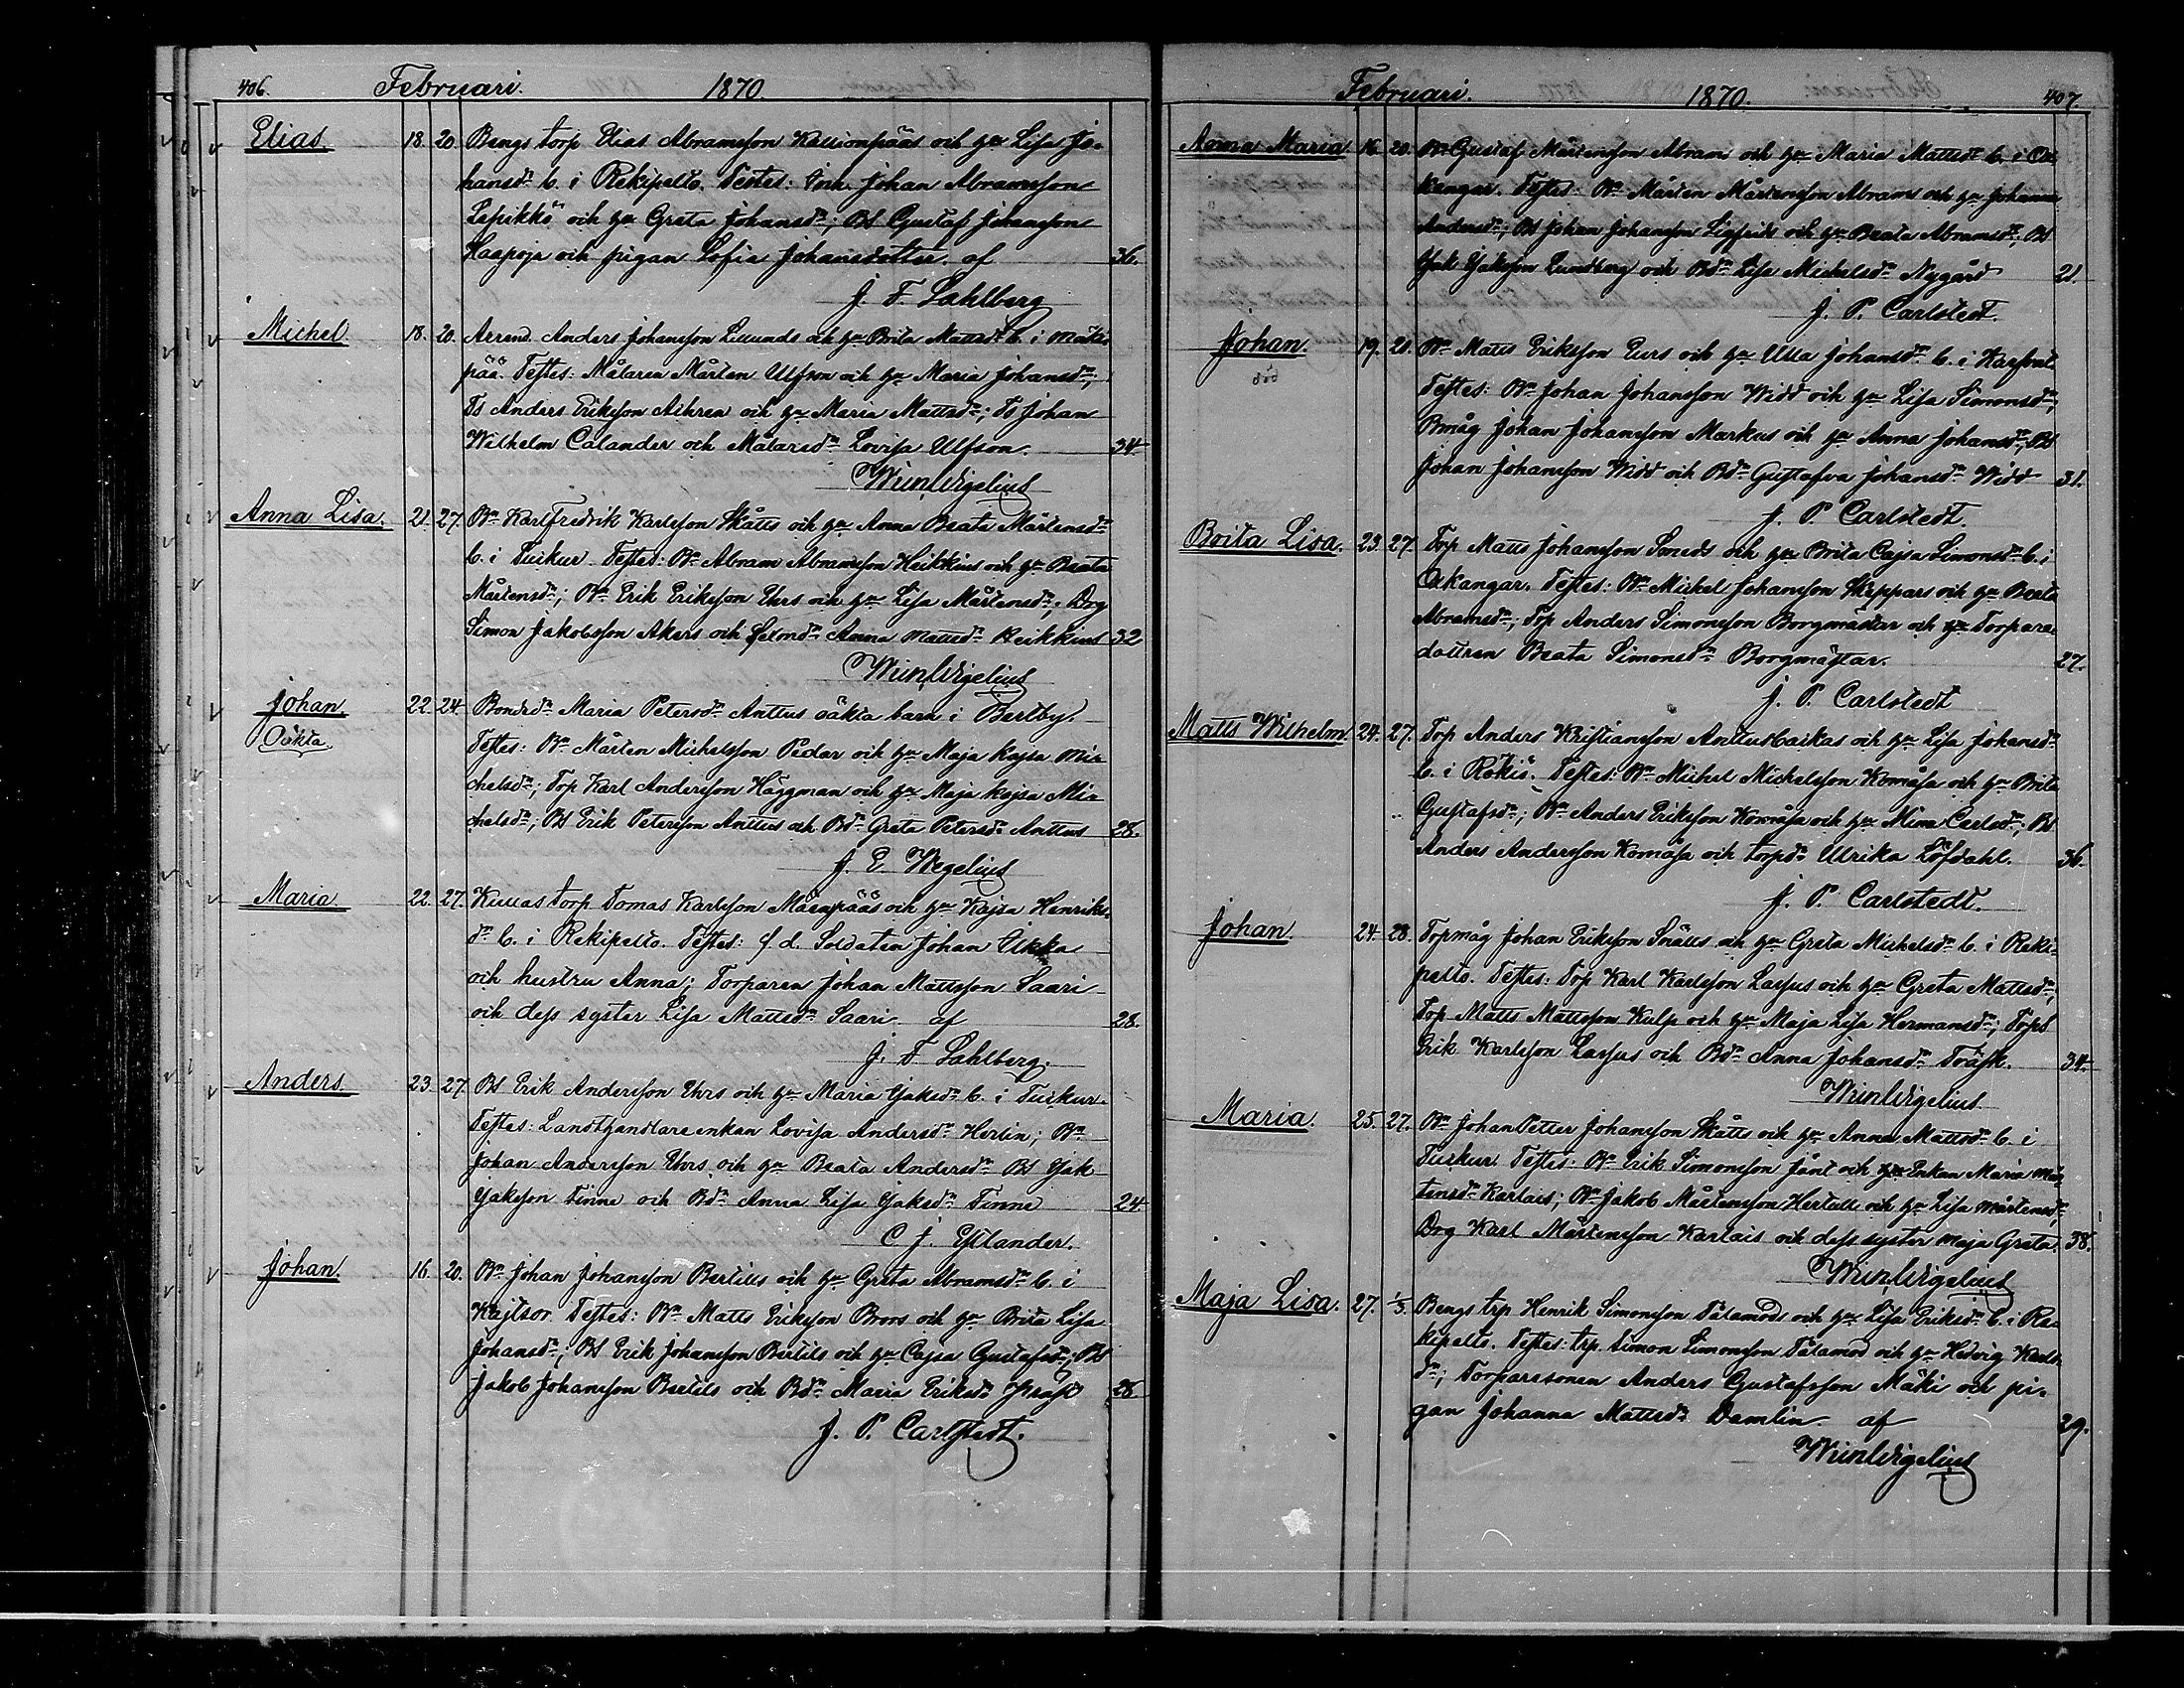 406. Februari. 1870.
Elias 18. 20. Bengs torp Elias Abramsson Kallionpääs och hu Lisa Jo-
hansdr b. i Rekipelto. Testes: Johan Abramsson
Lepikkö och hu Greta Johansdr; Bs Gustaf Johansson
Haapoja och pigan Sofia Johansdotter. af 36.
J. F. Sahlberg
Michel 18. 20. Arrend. Anders Johansson och hu Brita Mattsdr b. i
pää. Testes: Målaren Mårten Ulfson och hu Maria Johansdr;
Ts Anders Eriksson och hu Maria Mattsdr; Ts Johan
Wilhelm Calander och Målarsdr Lovisa Ulfson. 34
Wm Wegelius
Anna Lisa. 21. 27. Bn Karl Fredrik Karlsson Skätts och hu Anna Beata Mårtensdr
b. i Tuckur. Testes: Bn Abram Abramsson Heikkius och hu Beata
Mårtensdr; Bn Erik Eriksson Ehrs och hu Lisa Mårtensdr; Drg
Simon Jakobsson Akers och Anna Mattsdr Heikkius 32
Wm Wegelius
Johan. 22. 24. Bondedr Maria Petersdr Anttus oäkta barn i Bertby.
Oäkta. Testes: Bn Mårten Michelsson Pedar och hu Maja Kajsa Mi-
chelsdr; Torp Karl Andersson Häggman och hu Maja Kajsa Mi-
chelsdr; Bs Erik Petersson Anttus och Bdr Greta Petersdr Anttus 28.
J. E. Wegelius
Maria 22. 27. torp Tomas Karlsson Mäenpääs och hu Kajsa Henriks-
dr b. i Rekipelto. Testes: f d. Soldaten Johan Ukka
och hustru Anna; Torparen Johan Mattsson Saari
och dess syster Lisa Mattsdr Saari. af 28.
J. F. Sahlberg.
Anders 23. 27. Bs Erik Andersson Ehrs och hu Maria Isaksdr b. i Tuckur.
Testes: Landthandlare enkan Lovisa Andersdr Herlin; Bn
Johan Andersson Ehrs och hu Beata Andersdr Bs Isak
Isaksson Finne och Bdr Anna Lisa Isaksdr Finne 24
C. J. Estlander.
Johan. 16. 20. Bn Johan Johansson Bertills och hu Greta Abramsdr b. i
Kaitsor. Testes: Bn Matts Eriksson Broos och hu Brita Lisa
Johansdr; Bs Erik Johansson Bertils och hu Cajsa Gustafsdr; Bs
Jakob Johansson Bertils och Bdr Maria Eriksdr 28
J. P. Carlstedt.
Februari. 1870. 407.
Anna Maria 16. 20. Bn Gustaf Mårtensson Abrams och hu Maria Mattsdr b. i Ox-
kangar. Testes: Bn Mårten Mårtensson Abrams och hu Johanna
Andersdr; Bs Johan Johansson Sigfrids och hu Beata Abramsdr; Bs
Isak Isaksson Lundberg och Bdr Lisa Michelsdr Nygård 21.
J. P. Carlstedt.
Johan. 19. 20. Bn Matts Eriksson Eurs och hu Ulla Johansdr b. i Karfsoat.
död Testes: Bn Johan Johansson Widd och hu Lisa Simonsdr;
Bmåg Johan Johansson Markus och hu Anna Johansdr; Bs
Johan Johansson Widd och Bdr Gustafva Johansdr Widd 31.
J. P. Carlstedt.
Brita Lisa. 23. 27. Torp Matts Johansson Smeds och hu Brita Cajsa Simonsdr b. i
Oxkangar. Testes: Bn Michel Johansson Skeppars och hu Beata
Abramsdr; Torp Anders Simonsson Borgmästar och Torpare-
dottren Beata Simonsdr Borgmästar. 27.
J. P. Carlstedt
Matts Wilhelm. 24. 27. Torp Anders Kristiansson Anttusbackas och hu Lisa Johansdr
b. i Rökiö. Testes: Bn Michel Michelsson Komåsa och hu Brita
Gustafsdr; Bn Anders Eriksson Komåsa och hu Mina Carlsdr; Bs
Anders Andersson Komåsa och torpdr Ulrika Löfdahl. 36.
J. P. Carlstedt.
Johan. 24. 28. Torpmåg Johan Eriksson Snätts och hu Greta Michelsdr b. i Reki-
pelto. Testes: Torp Karl Karlsson Lassus och hu Greta Mattsdr;
Torp Matts Mattsson Kulp och hu Maja Lisa Hermansdr; Torps
Erik Karlsson Lassus och Bdr Anna Johansdr Träsk. 34.
Wm Wegelius
Maria. 25. 27. Bn Johan Petter Johansson Skätts och hu Anna Mattsdr b. i
Tuckur. Testes: Bn Erik Simonsson Jänt och Enkan Maria Mår-
tensdr Karlais; Bn Jakob Mårtensson Hertull och hu Lisa Mårtensdr;
Drg Karl Mårtensson Karlais och dess syster Maja Greta. 38.
Wm Wegelius
Maja Lisa. 27. 1/3. Bengs trp Henrik Simonsson Tålamods och hu Lisa Eriksdr b. i Re-
kipelto. Testes: trp. Simon Simonsson Tålamod och hu Hedvig Karls-
dr; Torparesonen Anders Gustafsson Mäki och pi-
gan Johanna Mattsdr Damlin. af 29.
Wm Wegelius